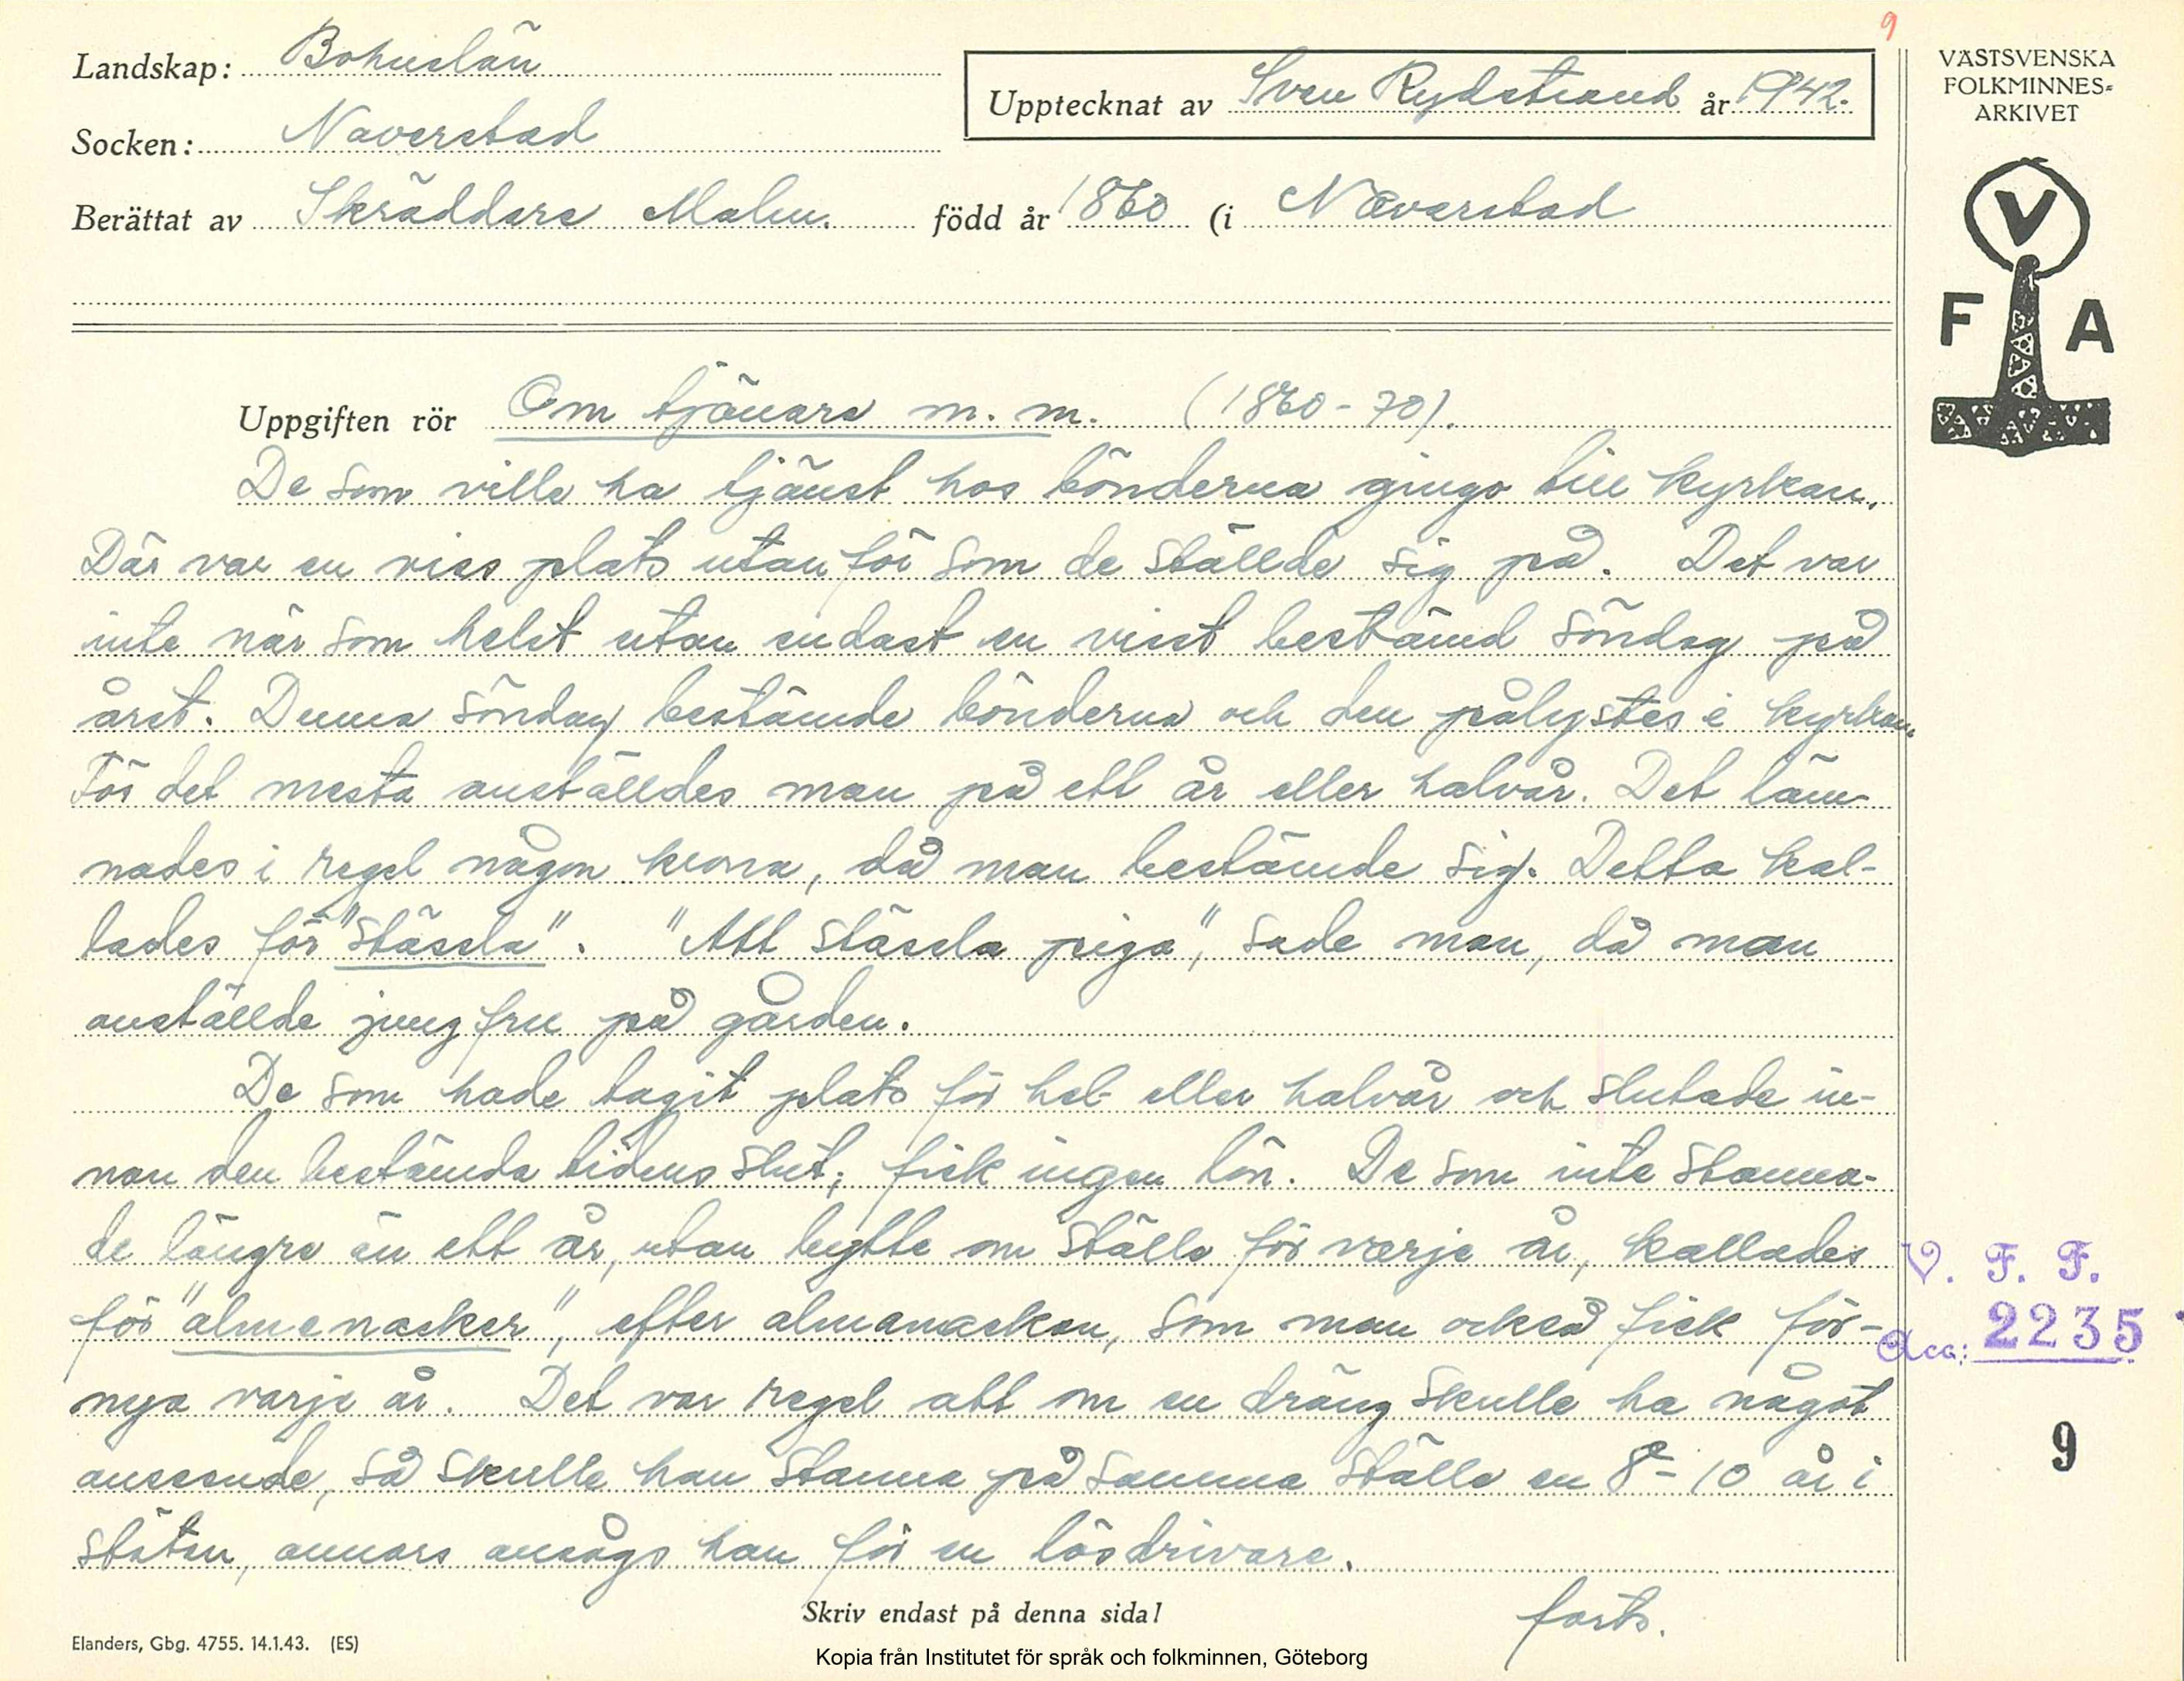 9
Landskap: Bohuslän
Upptecknat av Sven Rydstrand år 1942.
Socken: Naverstad
Berättat av Skräddare Malm. född år 1860 (i Naverstad
VÄSTSVENSKA
FOLKMINNES-
ARKIVET
V
F A
Uppgiften rör Om tjänare m. m. (1860-70).
De som ville ha tjänst hos bönderna gingo till kyrkan.
Där var en viss plats utanför som de ställde sig på. Det var
inte när som helst utan endast en visst bestämd söndag på
året. Denna söndag bestämde bönderna och den pålystes i kyrkan.
För det mesta anställdes man på ett år eller halvår. Det läm-
nades i regel någon krona, då man bestämde sig. Detta kal-
lades för "stässla". "Att stässla piga", sade man, då man
anställde jungfru på gården.
De som hade tagit plats för hel- eller halvår och slutade in-
nan den bestämda tidens slut, fick ingen lön. De som inte stanna-
de längre än ett år, utan bytte om ställe för varje år, kallades
för "almenacker", efter almanackan, som man också fick för-
nya varje år. Det var regel att om en dräng skulle ha något
anseende, så skulle han stanna på samma ställe en 8-10 år i
stöten, annars ansågs han för en lösdrivare.
forts.
V. F. F.
Acc: 2235
9
Skriv endast på denna sida!
Elanders, Gbg. 4755. 14.1.43. (ES)
Kopia från Institutet för språk och folkminnen, Göteborg